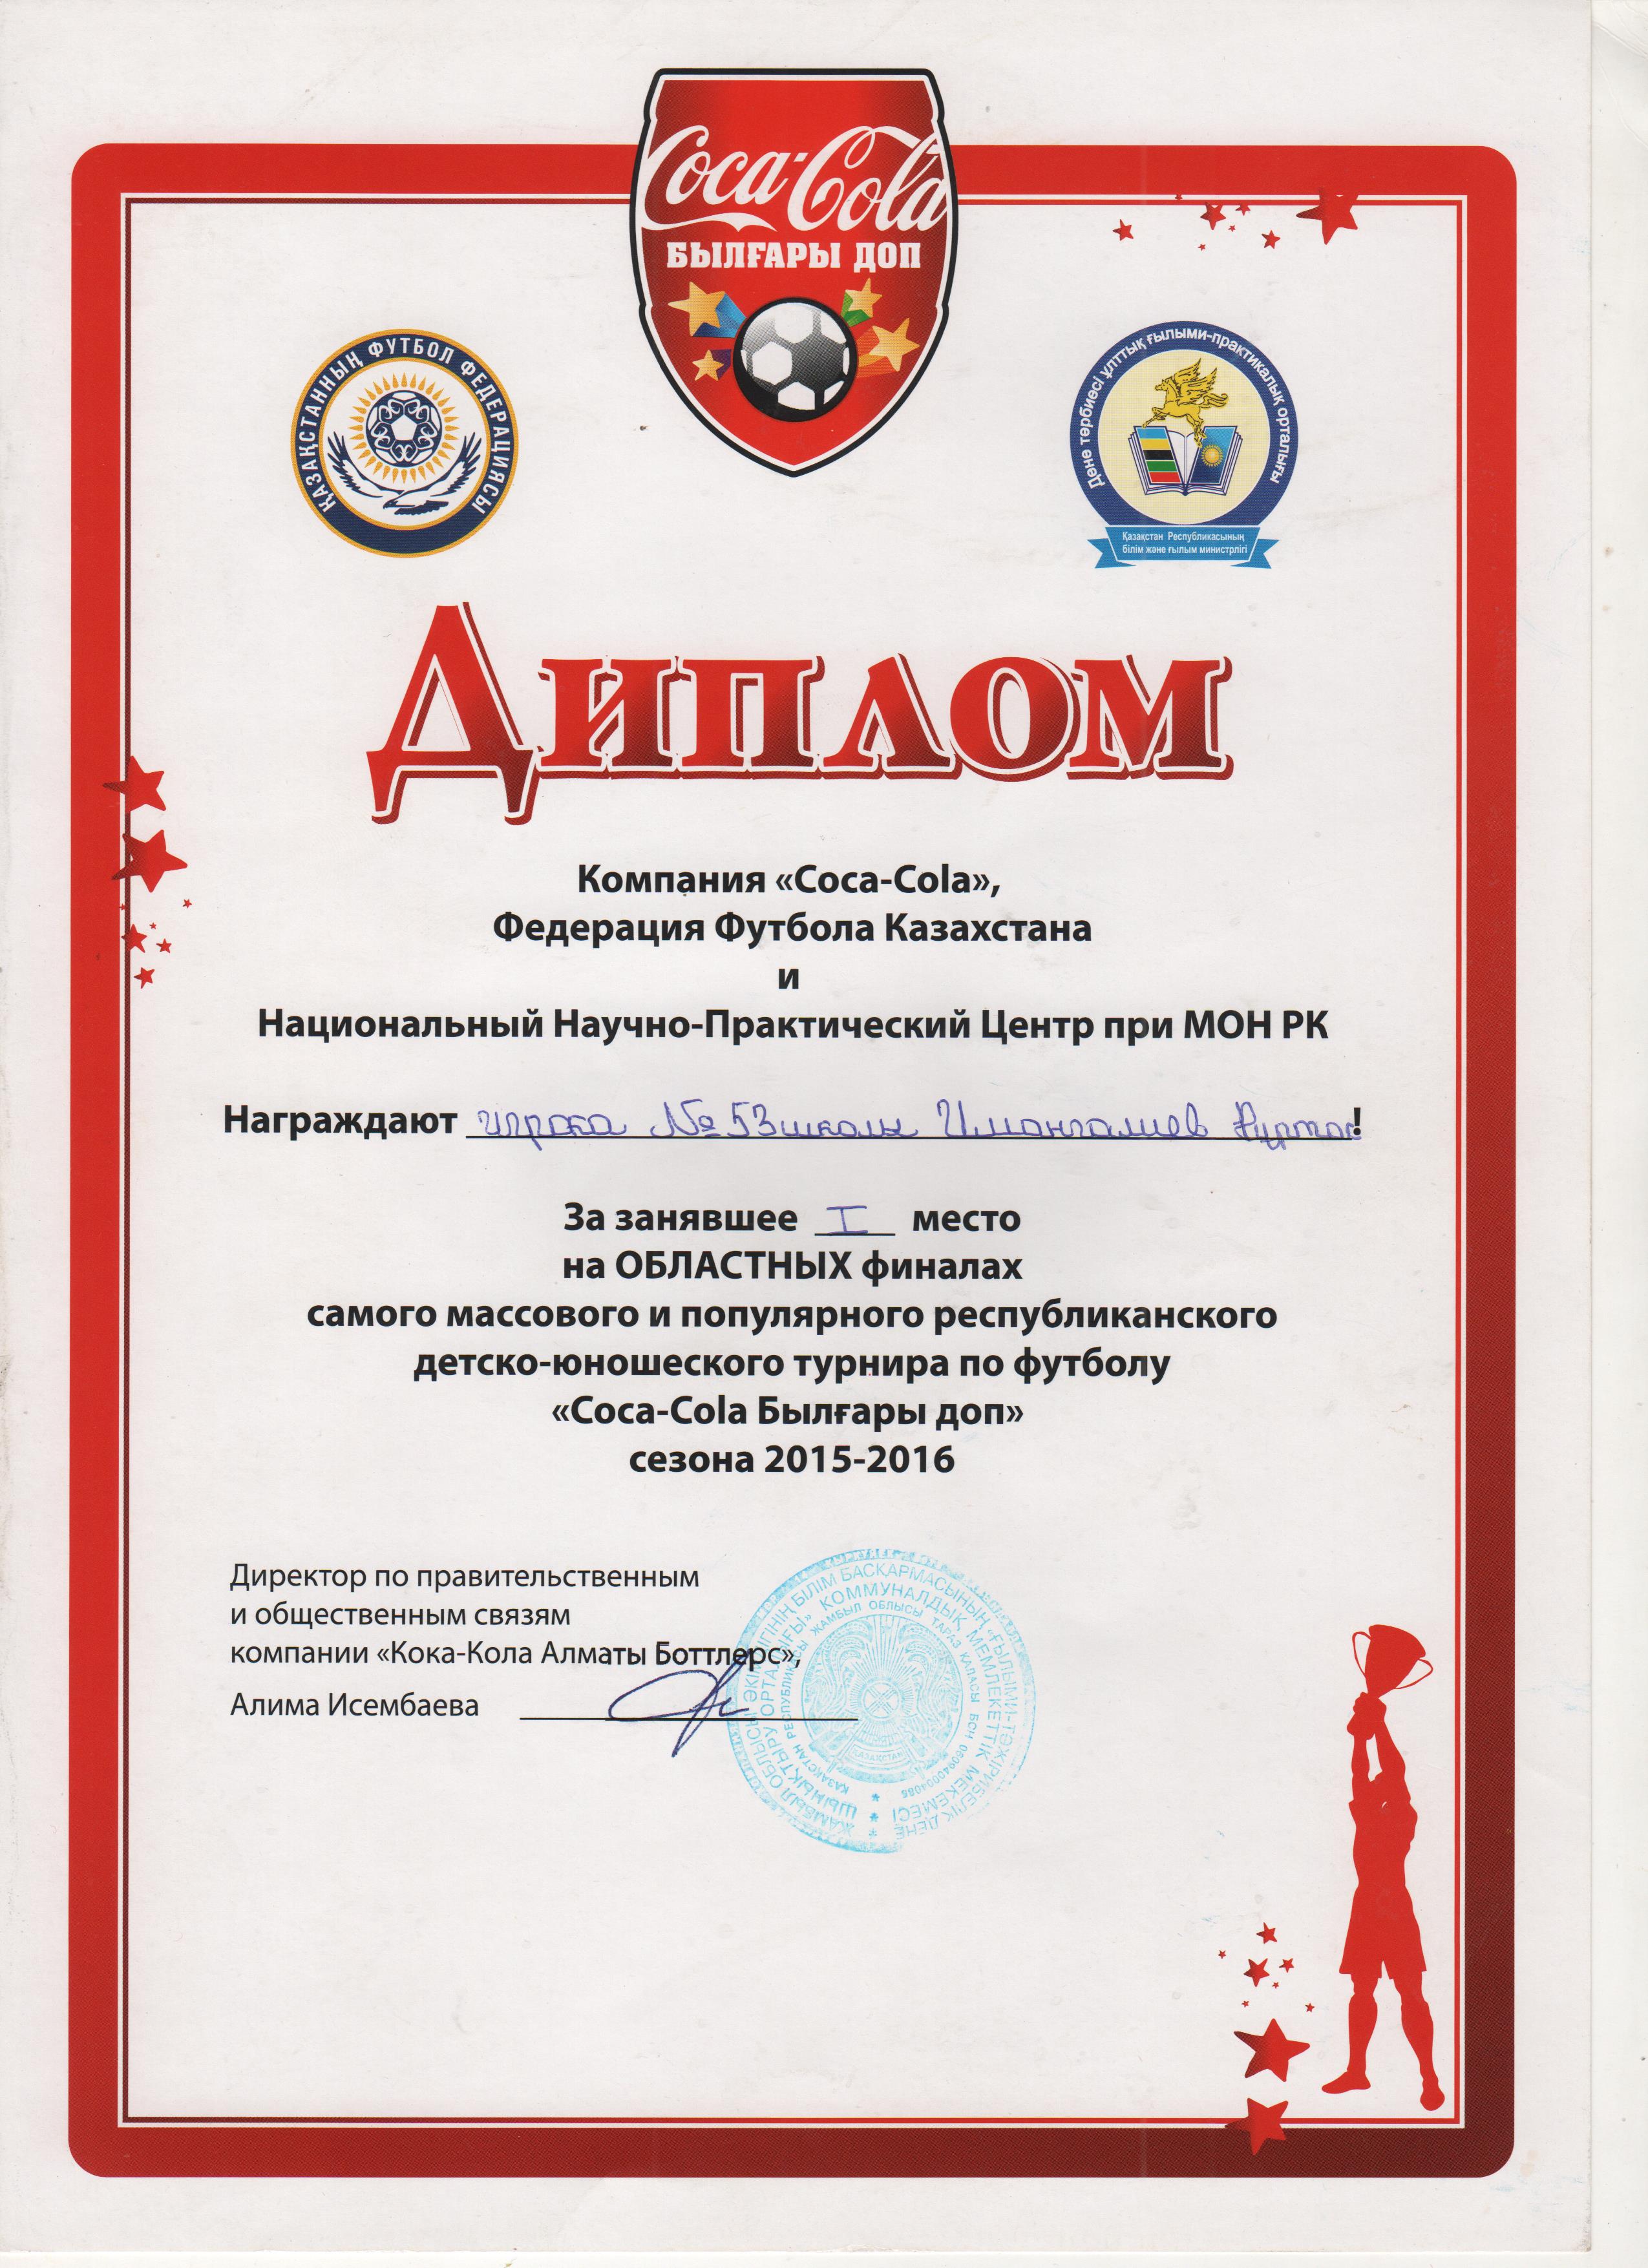 Coca-Cola
БЫЛҒАРЫ ДОП
ҚАЗАҚСТАННЫҢ ФУТБОЛ ФЕДЕРАЦИЯСЫ
Дене тәрбиесі ұлттық ғылыми-практикалық орталығы
Қазақстан Республикасының
білім және ғылым министрлігі
Диплом
Компания «Coca-Cola»,
Федерация Футбола Казахстана
и
Национальный Научно-Практический Центр при МОН РК
Награждают игрока №53 школы Имангалиев Нуртас!
За занявшее I место
на ОБЛАСТНЫХ финалах
самого массового и популярного республиканского
детско-юношеского турнира по футболу
«Coca-Cola Былғары доп»
сезона 2015-2016
Директор по правительственным
и общественным связям
компании «Кока-Кола Алматы Боттлерс»,
Алима Исембаева
ЖАМБЫЛ ОБЛЫСЫ ӘКІМДІГІНІҢ БІЛІМ БАСҚАРМАСЫНЫҢ «ҒЫЛЫМИ-ТӘЖІРИБЕЛІК ДЕНЕ
ШЫНЫҚТЫРУ ОРТАЛЫҒЫ» КОММУНАЛДЫҚ МЕМЛЕКЕТТІК МЕКЕМЕСІ
ҚАЗАҚСТАН РЕСПУБЛИКАСЫ ЖАМБЫЛ ОБЛЫСЫ ТАРАЗ ҚАЛАСЫ БСН
ҚАЗАҚСТАН